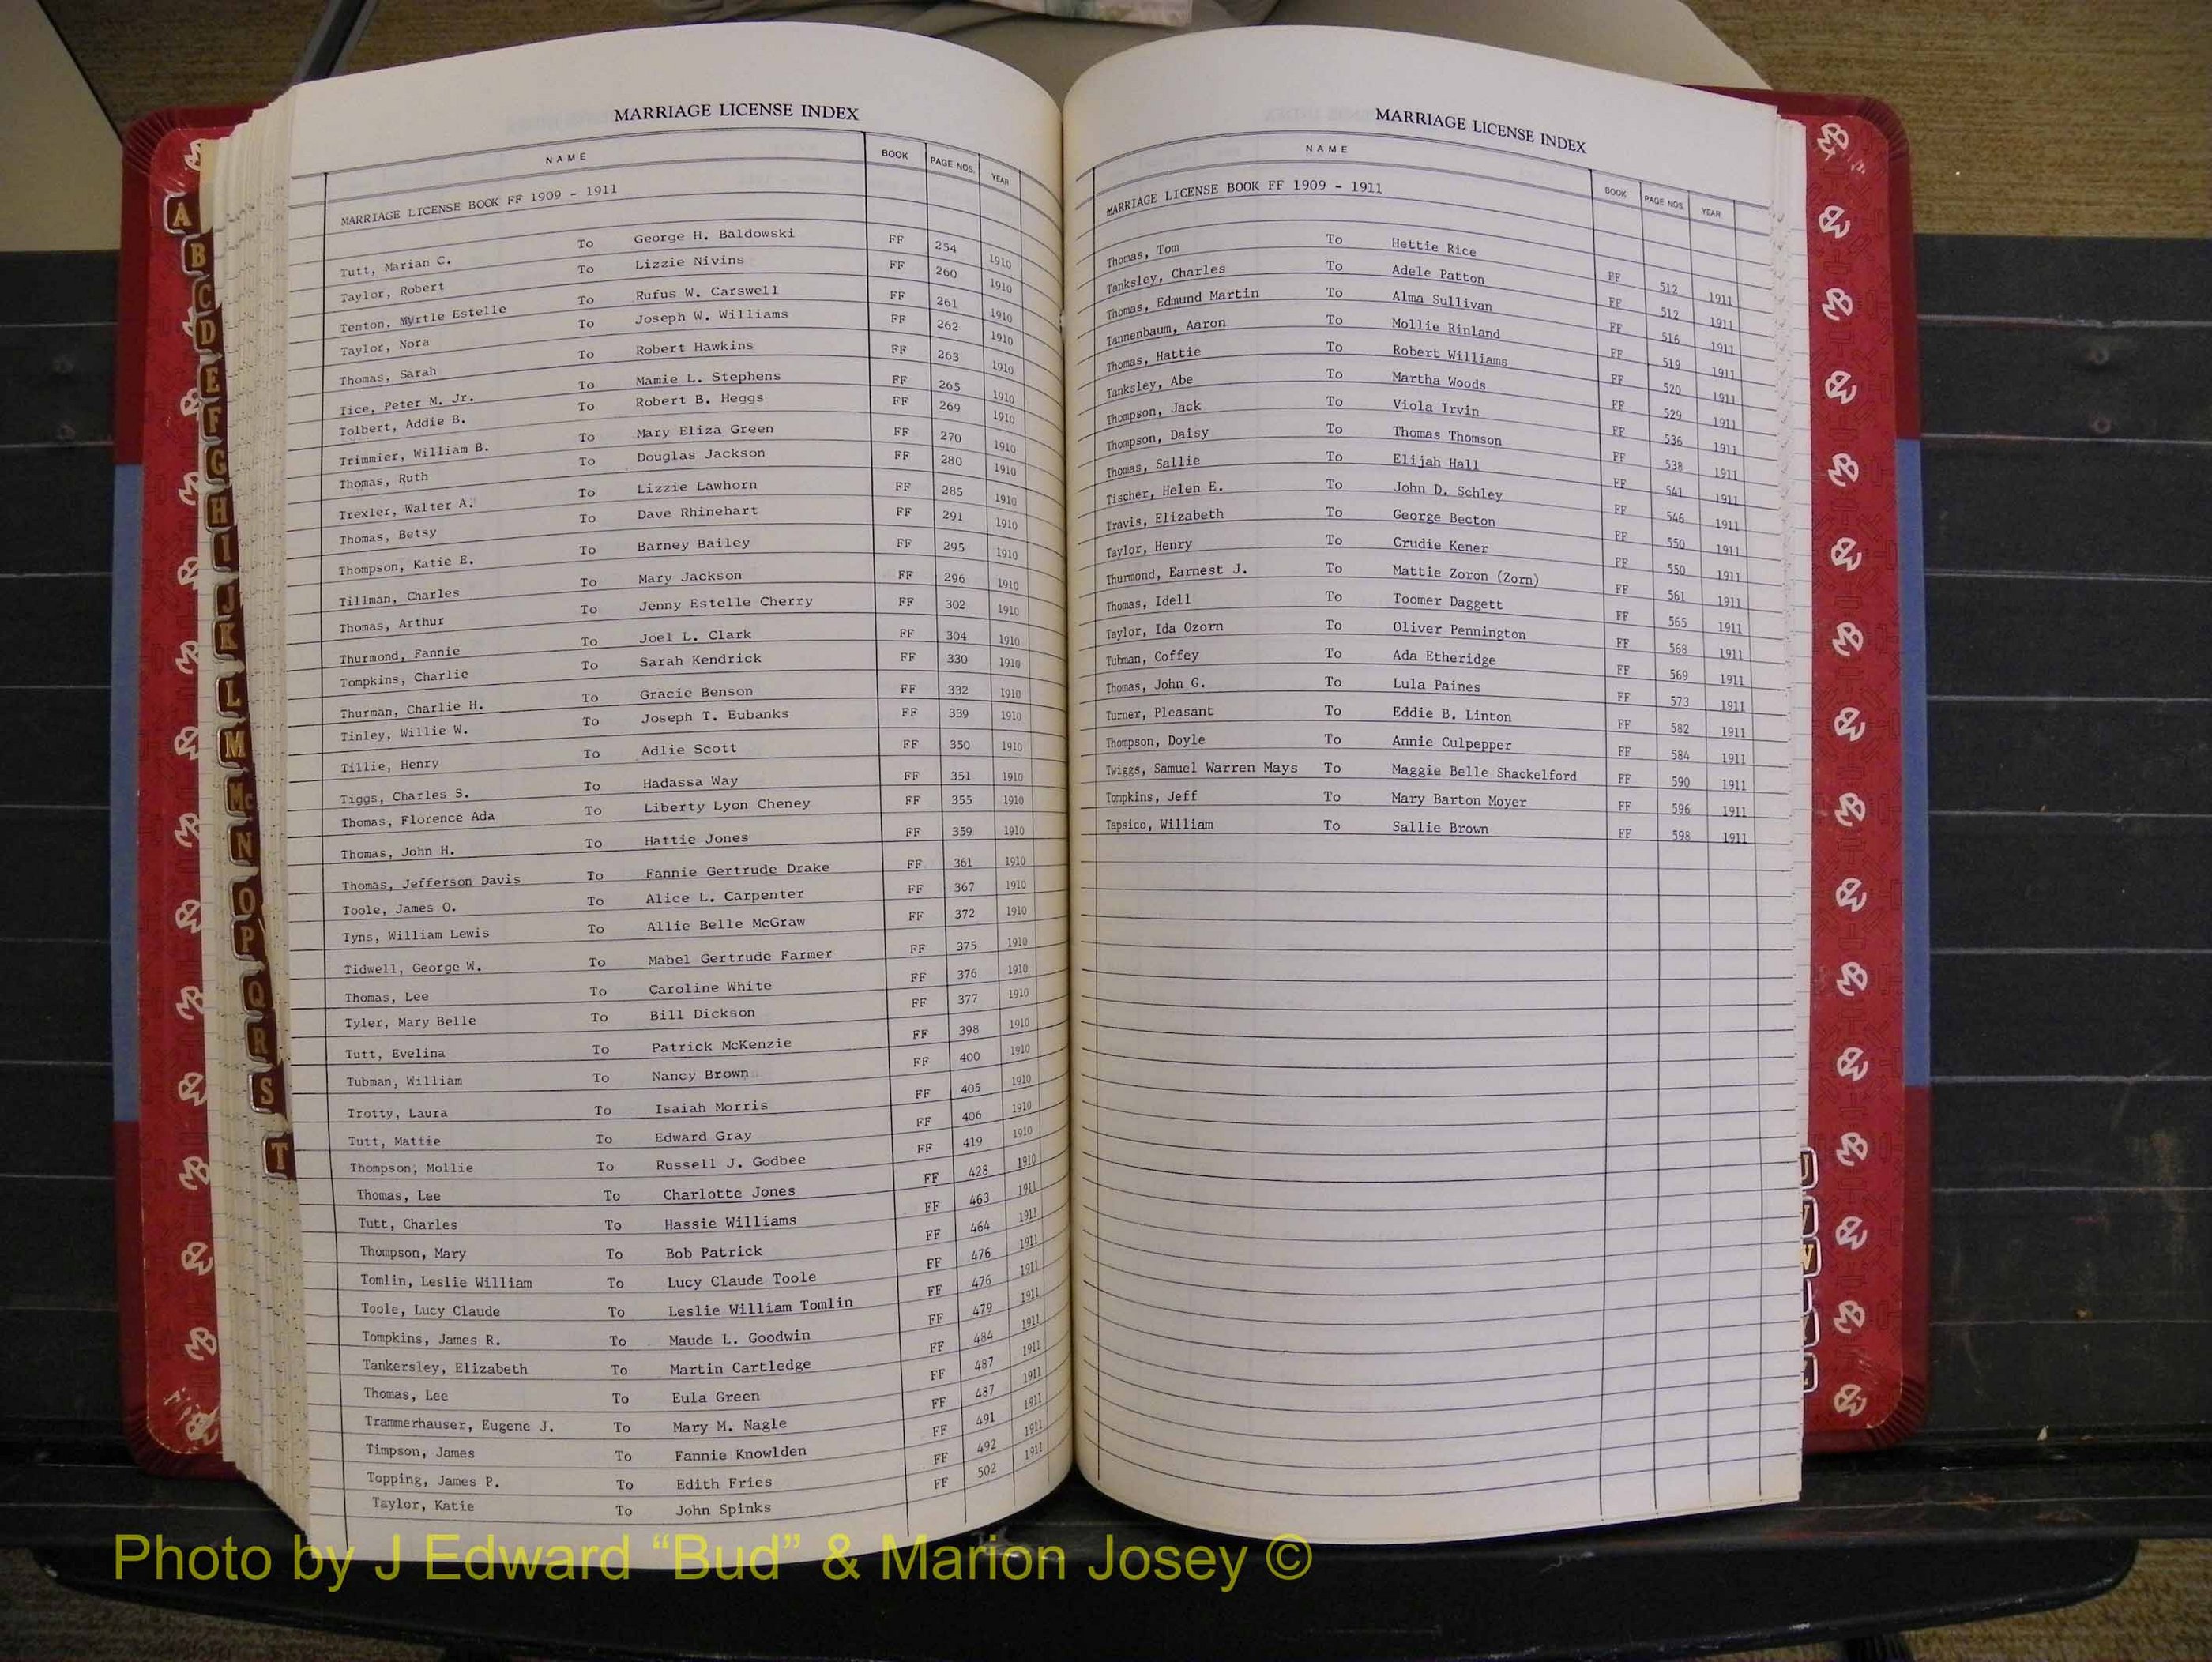 MARRIAGE LICENSE INDEX
NAME BOOK PAGE NOS. YEAR
MARRIAGE LICENSE BOOK FF 1909 - 1911
Tutt, Marian C. To George H. Baldowski FF 254 1910
Taylor, Robert To Lizzie Nivins FF 260 1910
Tenton, Myrtle Estelle To Rufus W. Carswell FF 261 1910
Taylor, Nora To Joseph W. Williams FF 262 1910
Thomas, Sarah To Robert Hawkins FF 263 1910
Tice, Peter M. Jr. To Mamie L. Stephens FF 265 1910
Tolbert, Addie B. To Robert B. Heggs FF 269 1910
Trimmier, William B. To Mary Eliza Green FF 270 1910
Thomas, Ruth To Douglas Jackson FF 280 1910
Trexler, Walter A. To Lizzie Lawhorn FF 285 1910
Thomas, Betsy To Dave Rhinehart FF 291 1910
Thompson, Katie E. To Barney Bailey FF 295 1910
Tillman, Charles To Mary Jackson FF 296 1910
Thomas, Arthur To Jenny Estelle Cherry FF 302 1910
Thurmond, Fannie To Joel L. Clark FF 304 1910
Tompkins, Charlie To Sarah Kendrick FF 330 1910
Thurman, Charlie H. To Gracie Benson FF 332 1910
Tinley, Willie W. To Joseph T. Eubanks FF 339 1910
Tillie, Henry To Adlie Scott FF 350 1910
Tiggs, Charles S. To Hadassa Way FF 351 1910
Thomas, Florence Ada To Liberty Lyon Cheney FF 355 1910
Thomas, John H. To Hattie Jones FF 359 1910
Thomas, Jefferson Davis To Fannie Gertrude Drake FF 361 1910
Toole, James O. To Alice L. Carpenter FF 367 1910
Tyns, William Lewis To Allie Belle McGraw FF 372 1910
Tidwell, George W. To Mabel Gertrude Farmer FF 375 1910
Thomas, Lee To Caroline White FF 376 1910
Tyler, Mary Belle To Bill Dickson FF 377 1910
Tutt, Evelina To Patrick McKenzie FF 398 1910
Tubman, William To Nancy Brown FF 400 1910
Trotty, Laura To Isaiah Morris FF 405 1910
Tutt, Mattie To Edward Gray FF 406 1910
Thompson, Mollie To Russell J. Godbee FF 419 1910
Thomas, Lee To Charlotte Jones FF 428 1910
Tutt, Charles To Hassie Williams FF 463 1911
Thompson, Mary To Bob Patrick FF 464 1911
Tomlin, Leslie William To Lucy Claude Toole FF 476 1911
Toole, Lucy Claude To Leslie William Tomlin FF 476 1911
Tompkins, James R. To Maude L. Goodwin FF 479 1911
Tankersley, Elizabeth To Martin Cartledge FF 484 1911
Thomas, Lee To Eula Green FF 487 1911
Trammerhauser, Eugene J. To Mary M. Nagle FF 487 1911
Timpson, James To Fannie Knowlden FF 491 1911
Topping, James P. To Edith Fries FF 492 1911
Taylor, Katie To John Spinks FF 502 1911
MARRIAGE LICENSE INDEX
NAME BOOK PAGE NOS. YEAR
MARRIAGE LICENSE BOOK FF 1909 - 1911
Thomas, Tom To Hettie Rice FF 512 1911
Tanksley, Charles To Adele Patton FF 512 1911
Thomas, Edmund Martin To Alma Sullivan FF 516 1911
Tannenbaum, Aaron To Mollie Rinland FF 519 1911
Thomas, Hattie To Robert Williams FF 520 1911
Tanksley, Abe To Martha Woods FF 529 1911
Thompson, Jack To Viola Irvin FF 536 1911
Thompson, Daisy To Thomas Thomson FF 538 1911
Thomas, Sallie To Elijah Hall FF 541 1911
Tischer, Helen E. To John D. Schley FF 546 1911
Travis, Elizabeth To George Becton FF 550 1911
Taylor, Henry To Crudie Kener FF 550 1911
Thurmond, Earnest J. To Mattie Zoron (Zorn) FF 561 1911
Thomas, Idell To Toomer Daggett FF 565 1911
Taylor, Ida Ozorn To Oliver Pennington FF 568 1911
Tubman, Coffey To Ada Etheridge FF 569 1911
Thomas, John G. To Lula Paines FF 573 1911
Turner, Pleasant To Eddie B. Linton FF 582 1911
Thompson, Doyle To Annie Culpepper FF 584 1911
Twiggs, Samuel Warren Mays To Maggie Belle Shackelford FF 590 1911
Tompkins, Jeff To Mary Barton Moyer FF 596 1911
Tapsico, William To Sallie Brown FF 598 1911
A
B
C
D
E
F
G
H
I
J
K
L
M
Mc
N
O
P
Q
R
S
T
U
V
W
Photo by J Edward “Bud” & Marion Josey ©